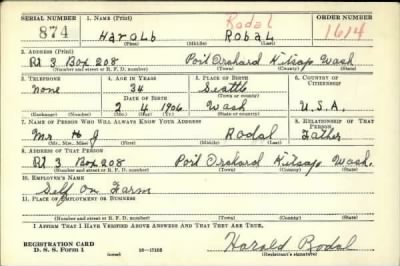 SERIAL NUMBER 1. NAME (Print) Rodal ORDER NUMBER
874 Harold Robal 1614
(First) (Middle) (Last)
2. ADDRESS (Print)
Rt 3 Box 208 Port Orchard Kitsap Wash
(Number and street or R. F. D. number) (Town) (County) (State)
3. TELEPHONE 4. AGE IN YEARS 5. PLACE OF BIRTH 6. COUNTRY OF CITIZENSHIP
None 34 Seattle
DATE OF BIRTH (Town or county)
2 4 1906 Wash U.S.A.
(Exchange) (Number) (Mo.) (Day) (Yr.) (State or country)
7. NAME OF PERSON WHO WILL ALWAYS KNOW YOUR ADDRESS 8. RELATIONSHIP OF THAT PERSON
Mr H J Rodal Father
(Mr., Mrs., Miss) (First) (Middle) (Last)
9. ADDRESS OF THAT PERSON
Rt 3 Box 208 Port Orchard Kitsap Wash.
(Number and street or R. F. D. number) (Town) (County) (State)
10. EMPLOYER'S NAME
Self On Farm
11. PLACE OF EMPLOYMENT OR BUSINESS
(Number and street or R. F. D. number) (Town) (County) (State)
I AFFIRM THAT I HAVE VERIFIED ABOVE ANSWERS AND THAT THEY ARE TRUE.
REGISTRATION CARD Harold Rodal
D. S. S. Form 1 (over) (Registrant's signature)